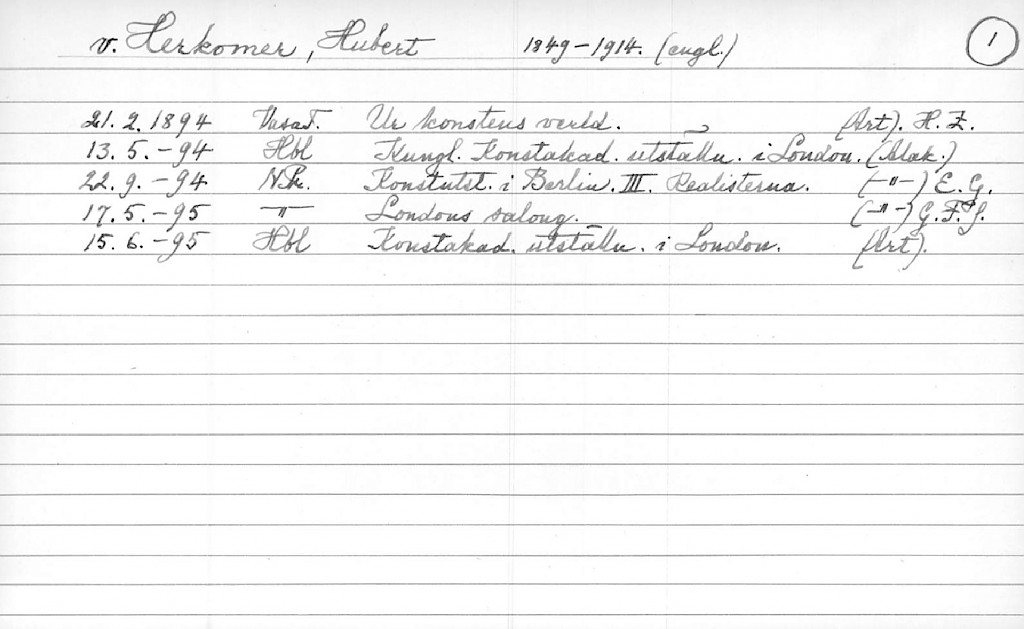 v. Herkomer, Hubert 1849-1914. (engl.) 1
21. 2. 1894 Vasat. Ur konstens verld. (Art). H. Z.
13. 5. -94 Hbl Kungl. Konstakad. utställn. i London. (Alak.)
22. 9. -94 N.Pr. Konstutst. i Berlin. III. Realisterna. (-"-) E. G.
17. 5. -95 -"- Londons salong. (-"-) G. F. S.
15. 6. -95 Hbl Konstakad. utställn. i London. (Art).